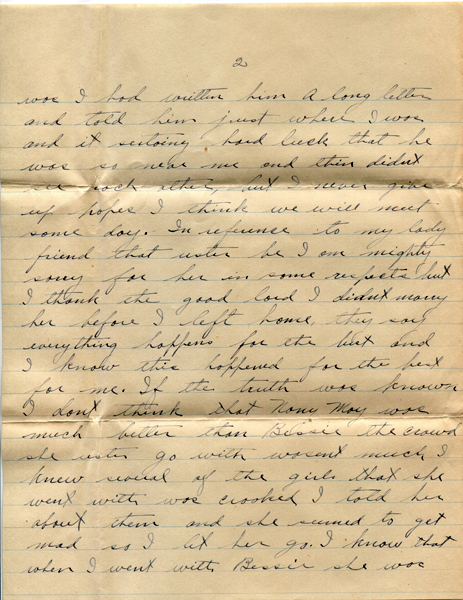 2
was I had written him a long letter
and told him just where I was
and it sertoiny hard luck that he
was so near me and then didnt
see each other, but I never give
up hopes I think we will meet
some day. In refrence to my lady
friend that uster be I am mighty
sorry for her in some respects but
I thank the good lord I didnt marry
her before I left home, they say
everything happens for the best and
I know this happened for the best
for me. If the truth was known
I dont think that May was
much better than Bessie the crowd
she uster go with wasent much I
knew several of the girls that she
went with was crooked I told her
about them and she seemed to get
mad so I let her go. I know that
when I went with Bessie she was